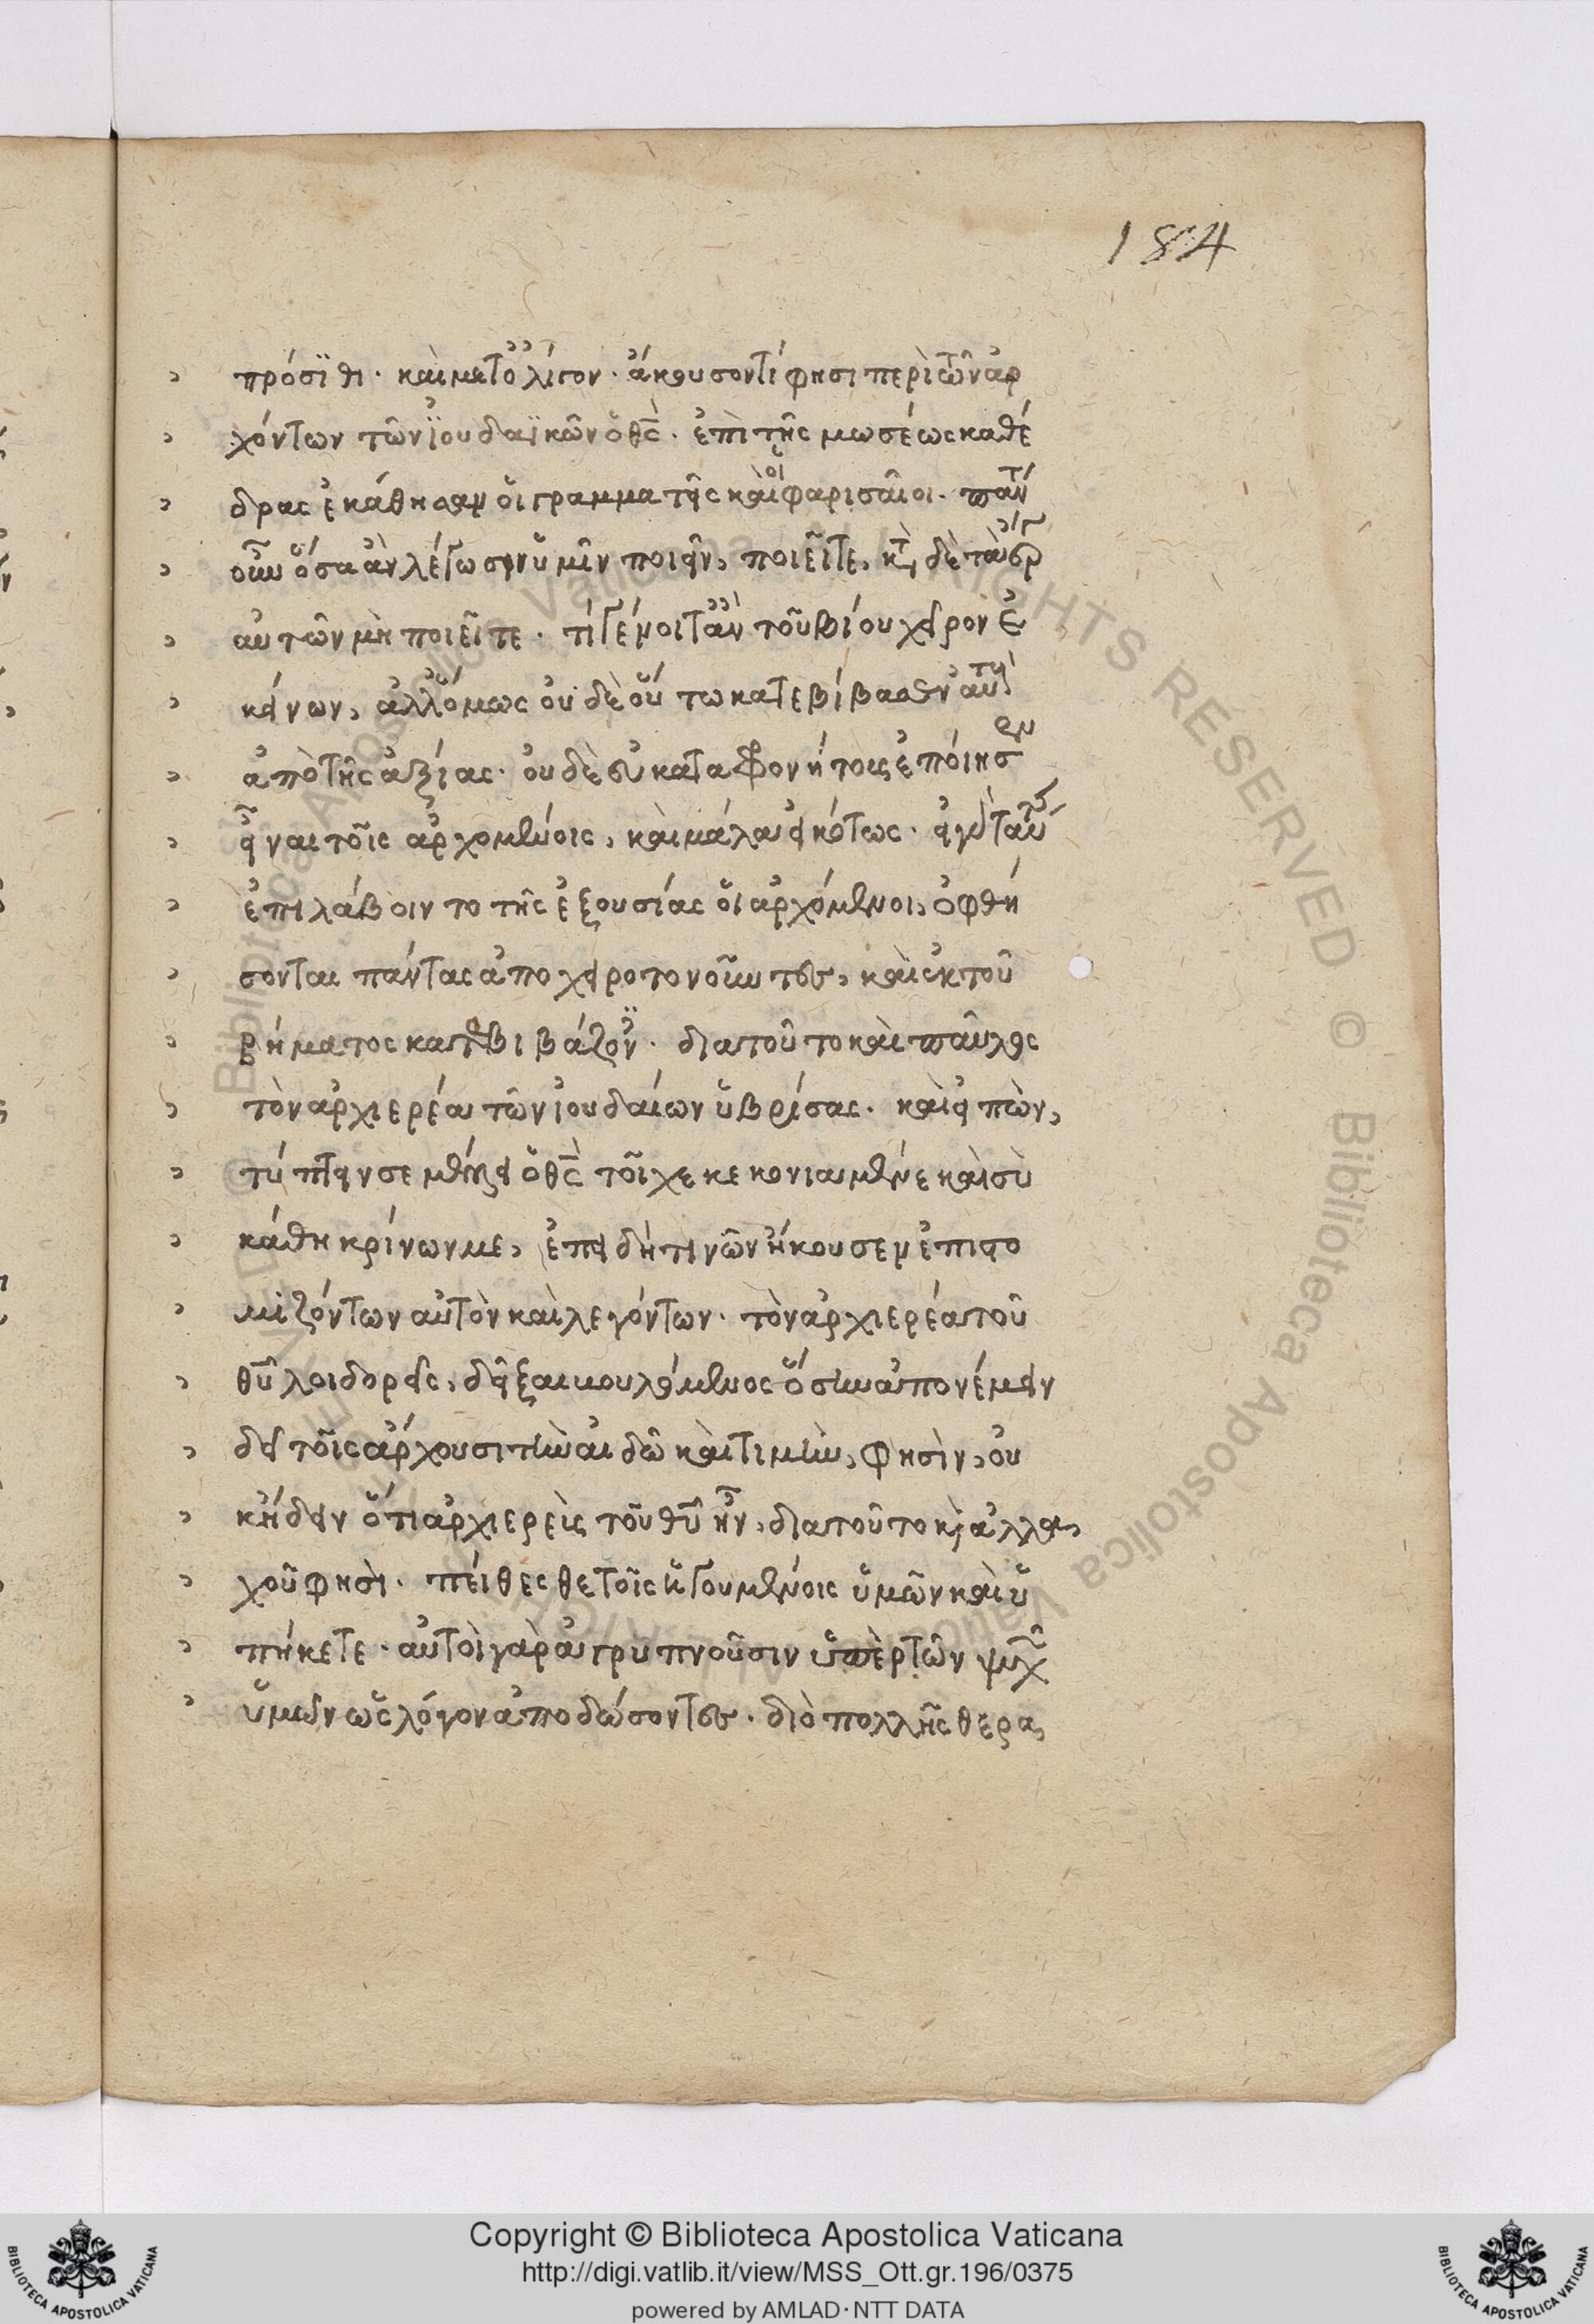 184
πρόσϊθι · καὶ μετ' ὀλίγον · ἄκουσον τί φησι περὶ τῶν ἀρ
χόντων τῶν ἰουδαϊκῶν ὁ θς̄ · ἐπὶ τῆς μωσέως καθέ
δρας ἐκάθησαν οἱ γραμματεῖς καὶ οἱ φαρισαῖοι · πάντ
οὖν ὅσα ἂν λέγωσιν ὑμῖν ποιεῖν, ποιεῖτε, κτ̀ δὲ τὰ ἔργ
αὐτῶν μὴ ποιεῖτε · τί γένοιτ' ἂν τοῦ βίου χεῖρον ἐ
κείνων, ἀλλ' ὅμως οὐδὲ οὕτω κατεβίβασεν αὐτοὺ
ἀπὸ τῆς ἀξίας · οὐδὲ εὐκαταφρονήτους ἐποίησεν
εἶναι τοῖς ἀρχομένοις, καὶ μάλα εἰκότως · εἰ γὰρ ταύτ
ἐπιλάβοιντο τῆς ἐξουσίας οἱ ἀρχόμενοι, ὀφθή
σονται πάντας ἀποχειροτονοῦντες, καὶ ἐκ τοῦ
βήματος καταβιβάζον · διατοῦτο καὶ παῦλος
τὸν ἀρχιερέα τῶν ἰουδαίων ὑβρίσας · καὶ εἰπὼν,
τύπτειν σε μέλλει ὁ θς̄ τοῖχε κεκονιαμένε καὶ σὺ
κάθη κρίνων με, ἐπειδή τινῶν ἤκουσεν ἐπιστο
μιζόντων αὐτὸν καὶ λεγόντων · τὸν ἀρχιερέα τοῦ
θῦ λοιδορεῖς, δεῖξαι βουλόμενος ὅσην ἀπονέμειν
δεῖ τοῖς ἄρχουσι τὴν αἰδῶ καὶ τιμὴν, φησὶν, οὐ
κ ἤδειν ὅτι ἀρχιερεὺς τοῦ θῦ ἦν, διατοῦτο κ̀ ἀλλα
χοῦ φησὶ · πείθεσθε τοῖς ἡγουμένοις ὑμῶν καὶ ὑ
πήκετε · αὐτοὶ γὰρ ἀγρυπνοῦσιν ὑπὲρ τῶν ψυχ
ὑμῶν ὡς λόγον ἀποδώσοντες · διὸ πολλῆς θερα
Copyright © Biblioteca Apostolica Vaticana
http://digi.vatlib.it/view/MSS_Ott.gr.196/0375
powered by AMLAD·NTT DATA